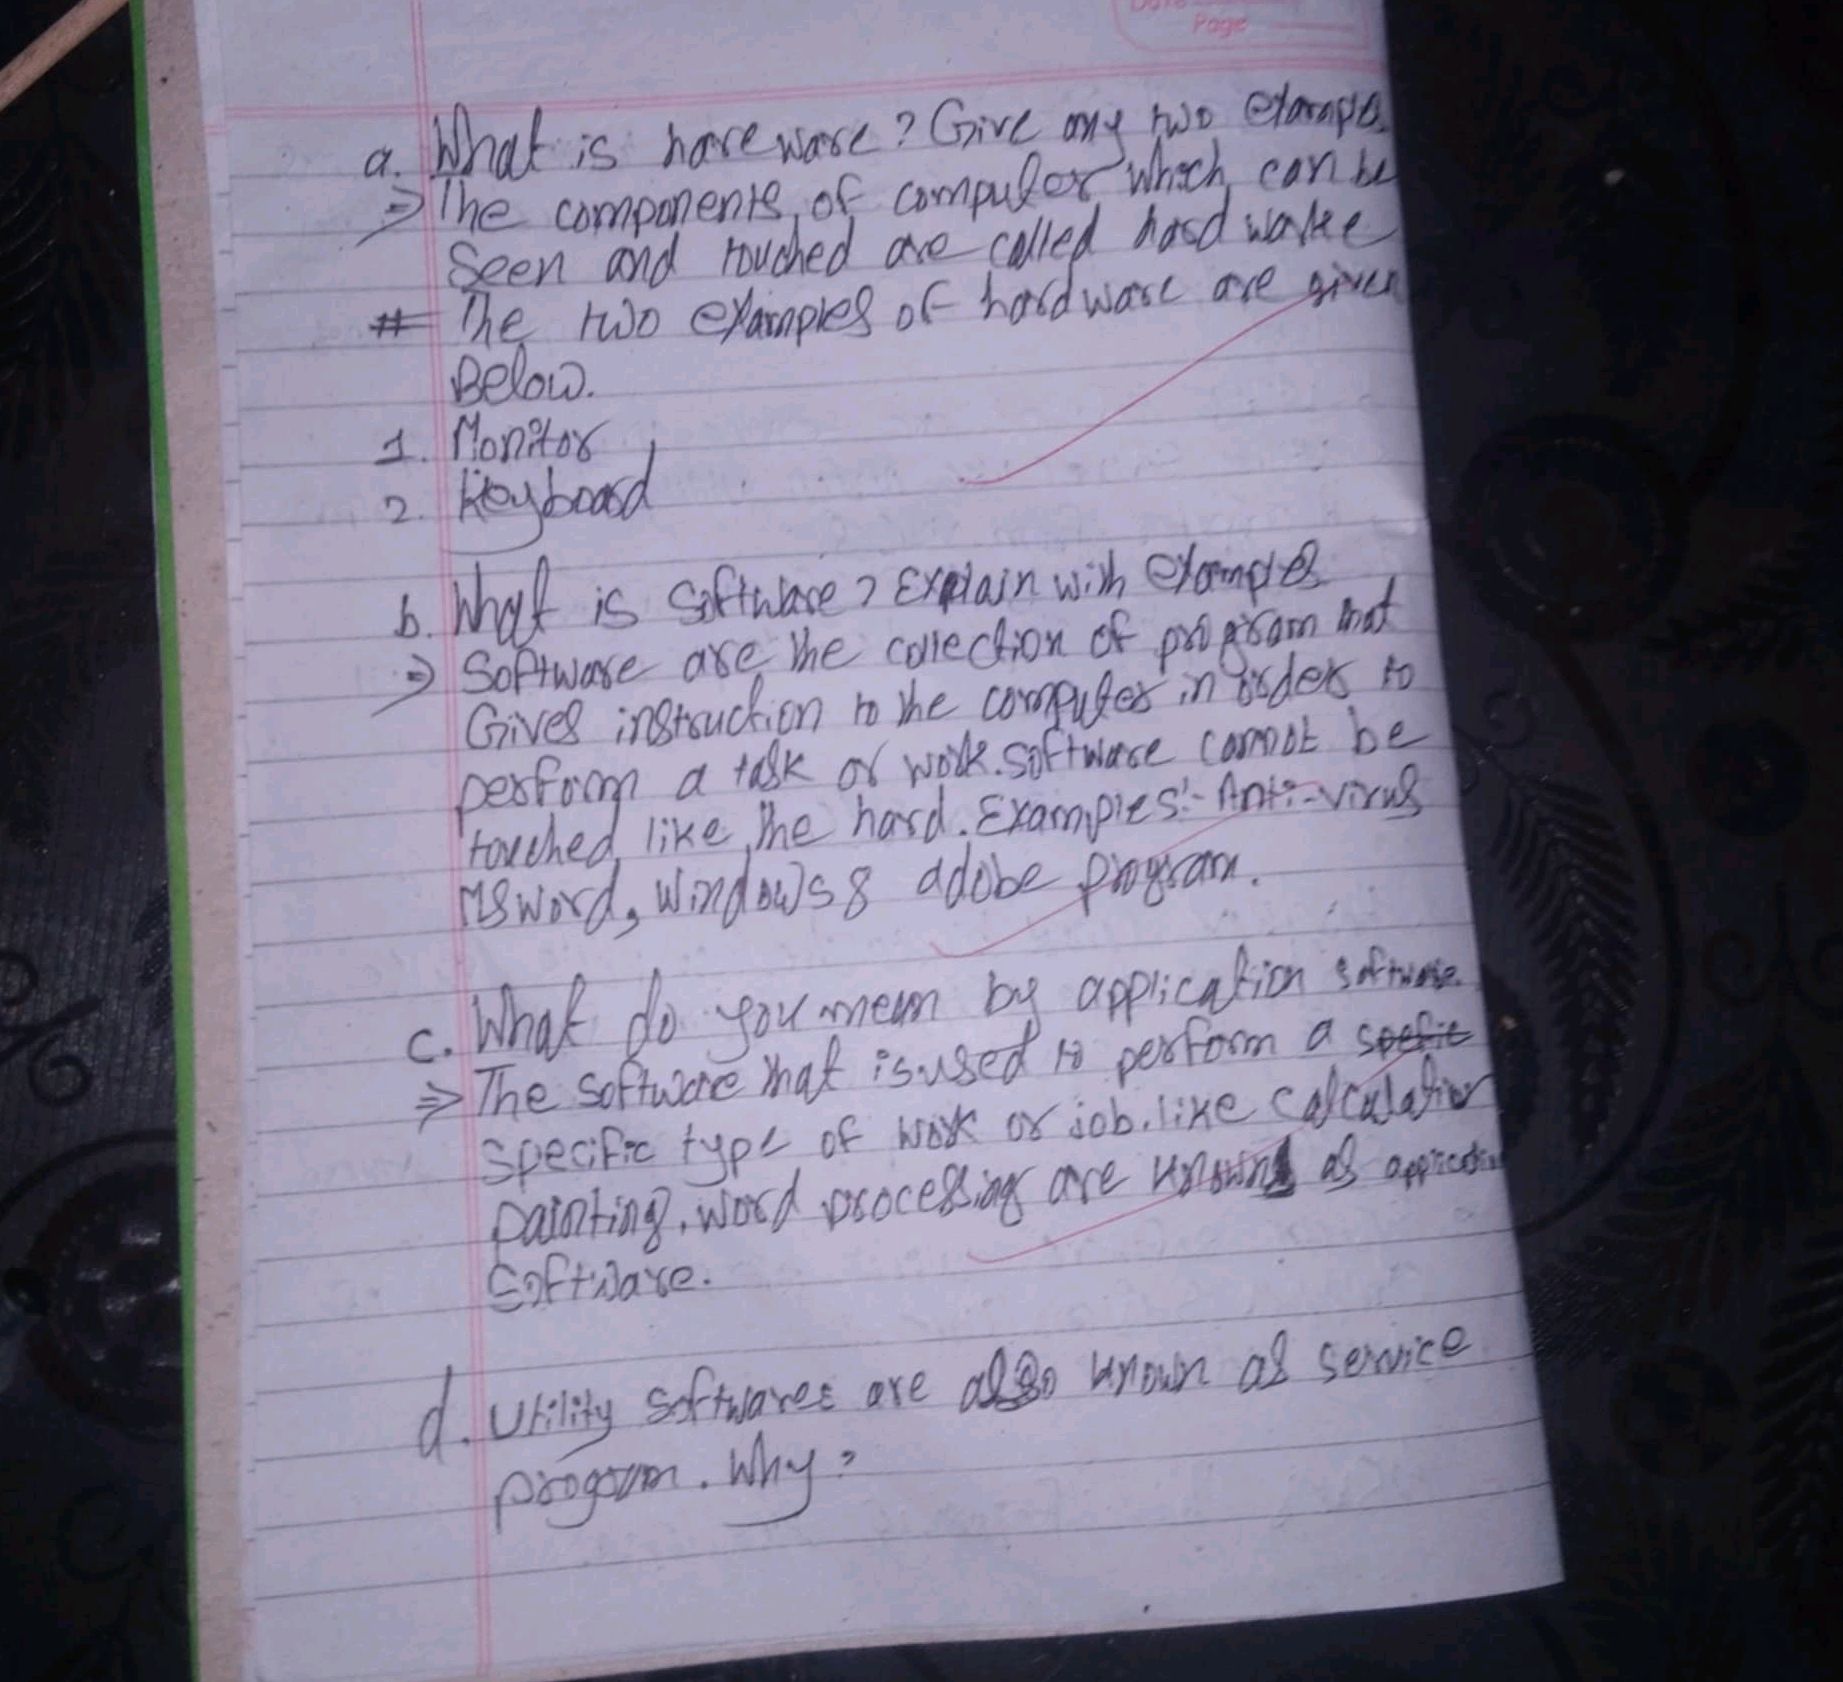 Date
Page
a. What is hareware? Give any two example.
⇒ The components of computer which can be
Seen and touched are called hardwatre
# The two examples of hardware are given
Below.
1. Monitor
2. Keyboard
b. What is Software? Explain with examples
⇒ Software are the collection of program that
Gives instruction to the computer in order to
perform a task or work. Software cannot be
touched like the hard. Examples:- Anti-virus
MSword, Windows 8 adobe program.
c. What do you mean by application software.
⇒ The software that is used to perform a spefic
specific type of work or job. like calculation
painting, word processing are known as application
Software.
d. Utility softwares are also known as service
program. Why?